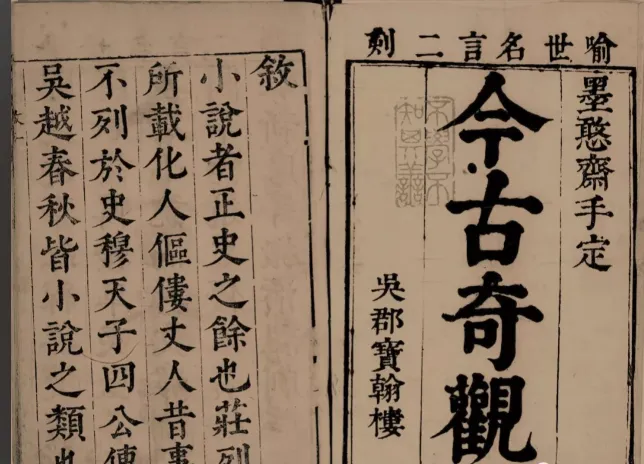 喻世名言二刻
墨憨齋手定
今古奇觀
吳郡寶翰樓
敘
小說者正史之餘也莊列
所載化人傴僂丈人昔事
不列於史穆天子四公傳
吳越春秋皆小說之類也